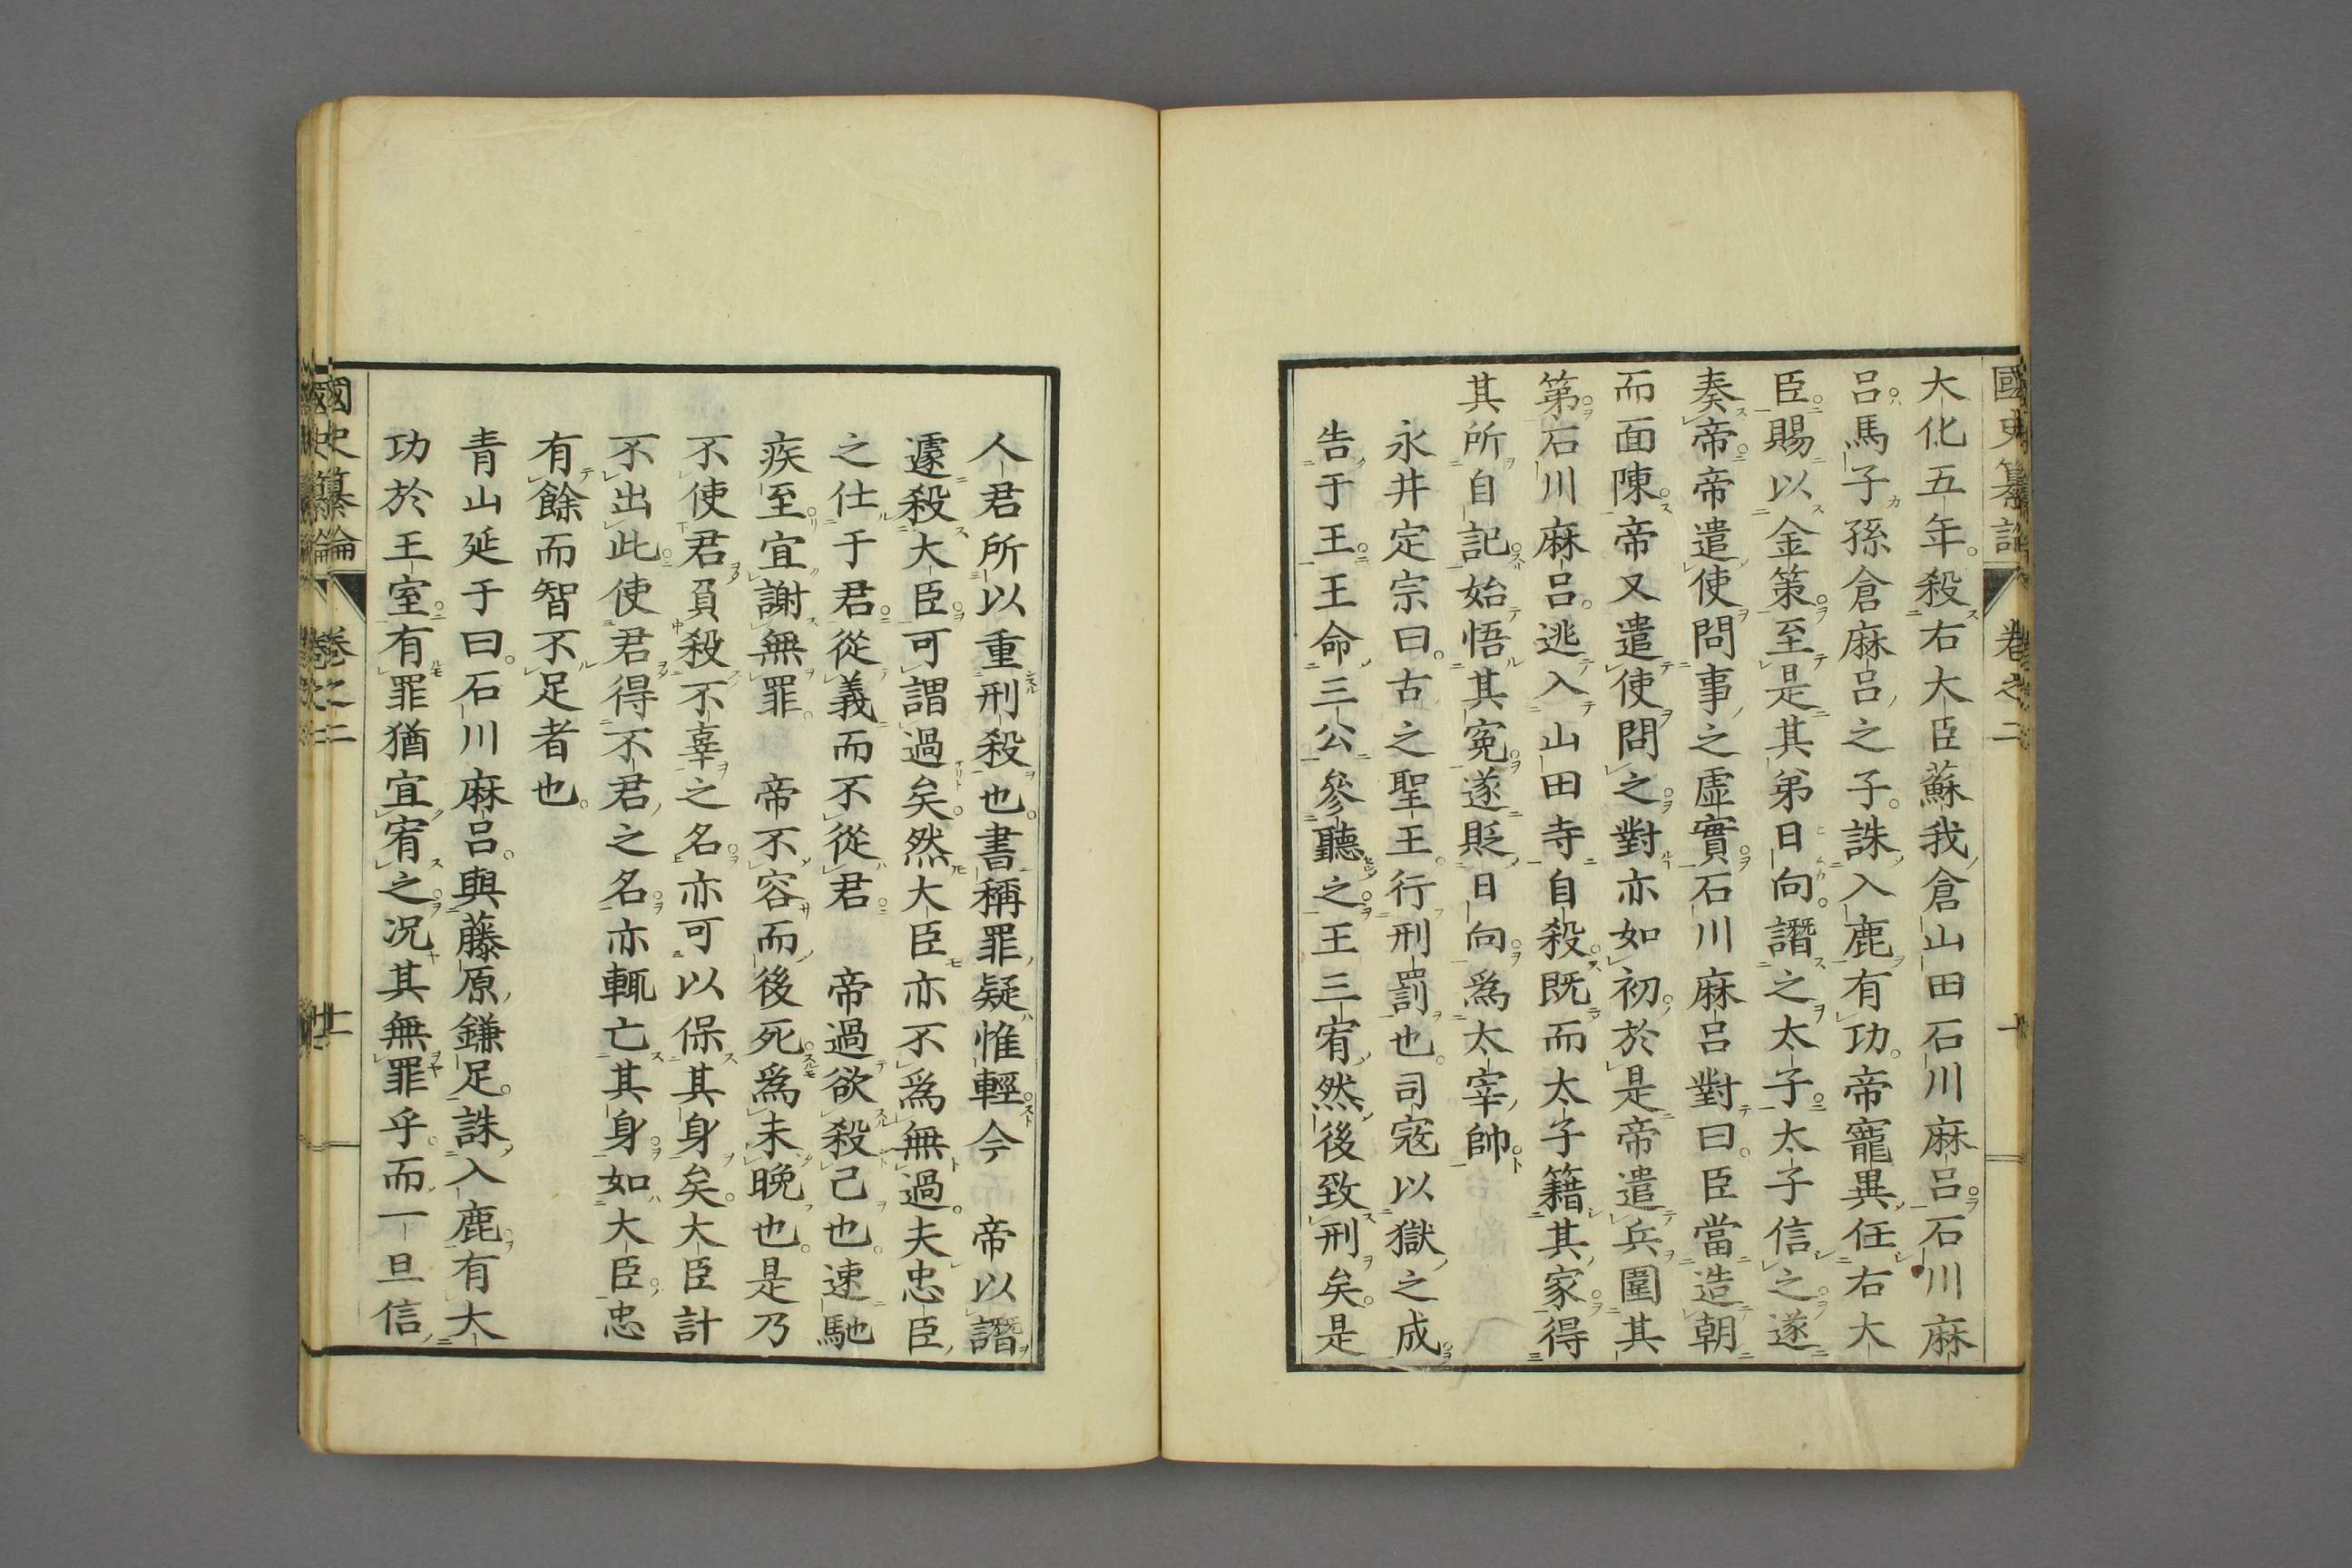 國史纂論 卷之二 十
大化五年。殺右大臣蘇我倉山田石川麻呂。石川麻
呂。馬子孫倉麻呂之子。誅入鹿有功。帝寵異任右大
臣。賜以金策。至是其弟日向。譖之太子。太子信之。遂
奏帝。帝遣使問事之虛實。石川麻呂對曰。臣當造朝
而面陳。帝又遣使問之。對亦如初。於是帝遣兵圍其
第。石川麻呂。逃入山田寺自殺。既而太子籍其家。得
其所自記。始悟其冤。遂貶日向。爲太宰帥。
永井定宗曰。古之聖王。行刑罰也。司寇以獄之成。
告于王。王命三公參聽之。王三宥。然後致刑矣。是
人君所以重刑殺也。書稱罪疑惟輕。今 帝以譖
遽殺大臣。可謂過矣。然大臣亦不爲無過。夫忠臣
之仕于君。從義而不從君。 帝過欲殺己也。速馳
疾至。宜謝無罪。 帝不容而後死。爲未晩也。是乃
不使君負殺不辜之名。亦可以保其身矣。大臣計
不出此。使君得不君之名。亦輒亡其身。如大臣。忠
有餘而智不足者也。
青山延于曰。石川麻呂。與藤原鎌足。誅入鹿。有大
功於王室。有罪猶宜宥之。況其無罪乎。而一旦信
國史纂論 卷之二